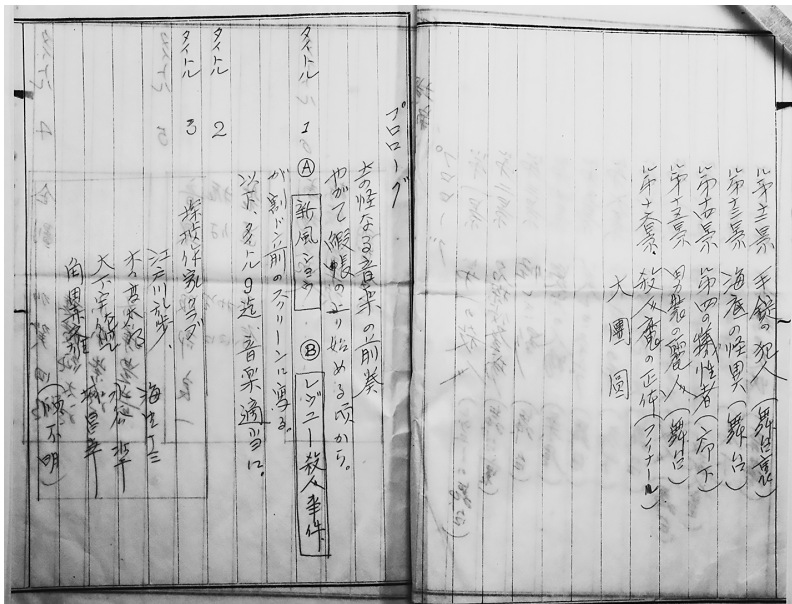 第十二景 手錠の犯人 (舞台裏)
第十三景 海底の怪異 (舞台)
第十四景 第四の犠牲者 (廊下)
第十五景 男装の麗人 (舞台)
第十六景 殺人魔の正体 (フイナーレ)
大團圓
プロローグ
の怪なる音楽の前奏
やがて緞帳の上り始める頃から。
タイトル 1 Ⓐ 新風ショウ Ⓑ レヴュー殺人事件
が割ドン前のスクリーンに寫る。
タイトル 2
以下、タイトル9迄、音楽適当に。
タイトル 3
探偵作家クラブ
江戸川乱歩 海野十三
木々高太郎 水谷準
大下宇陀児 城昌幸
角田喜久雄
(順不明)